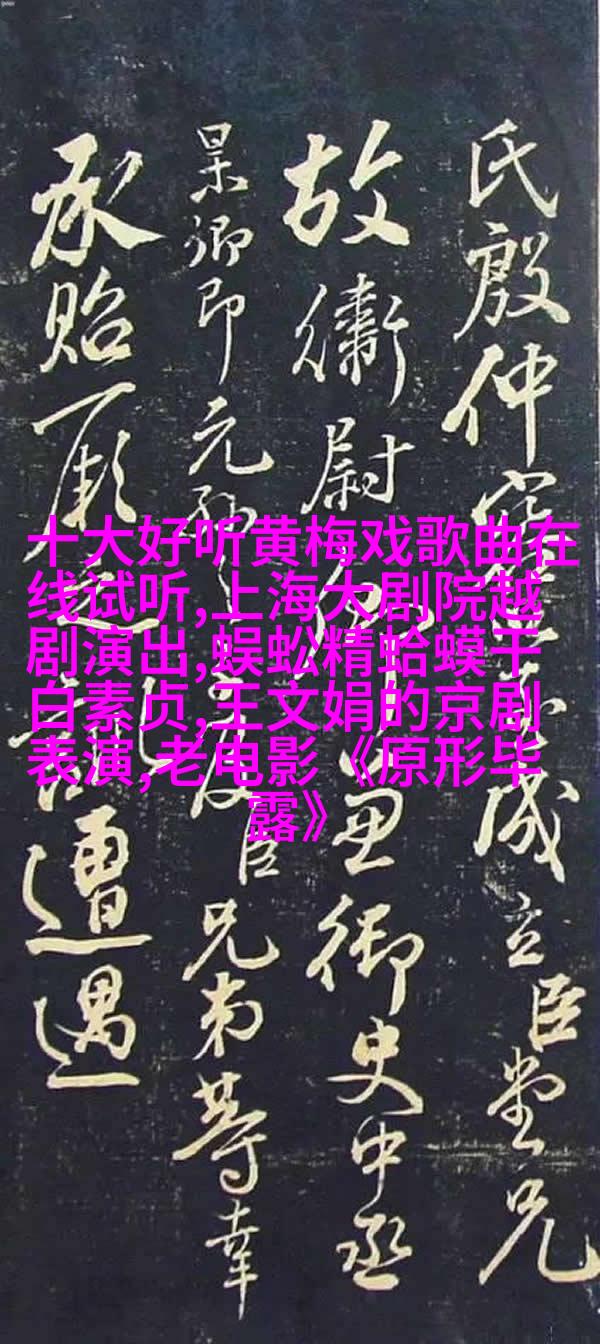 十大好听黄梅戏歌曲在
线试听,上海大剧院越
剧演出,蜈蚣精蛤蟆干
白素贞,王文娟的京剧
表演,老电影《原形毕
露》
氏殷仲成立臣堂兄
故衛尉兼御史中丞
杲卿即元孫臣兄弟等幸
承貽厥之遭遇